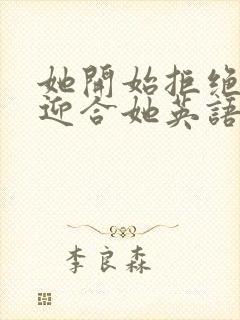 她開始拒絕
迎合她英語
李良森